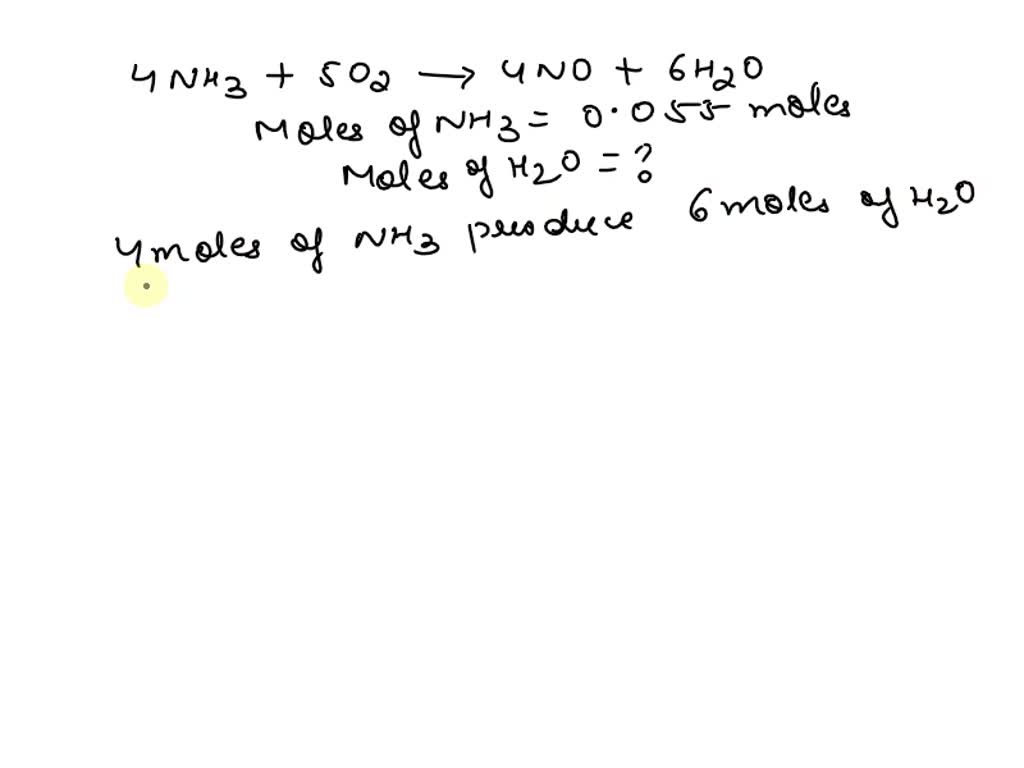 4NH3 + 5O2 → 4NO + 6H2O
Moles of NH3 = 0.055 moles
Moles of H2O = ?
4moles of NH3 produce 6 moles of H2O